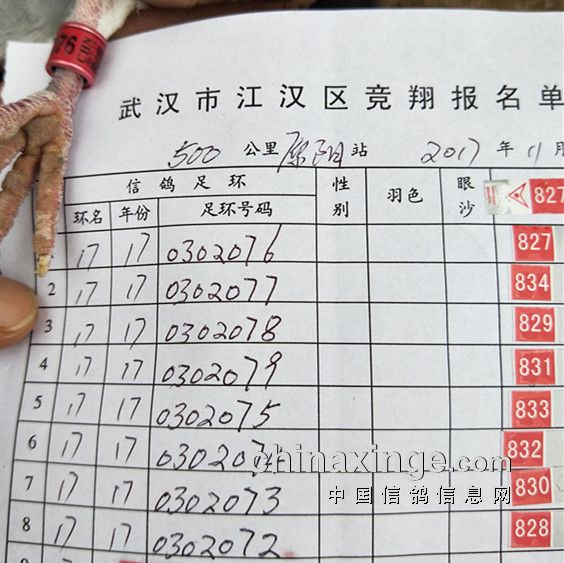 76 CHN
武汉市江汉区竞翔报名单
500 公里 原阳 站 2017 年 11 月
信鸽足环 性别 羽色 眼沙 827
环名 年份 足环号码
17 17 0302076 827
2 17 17 0302077 834
3 17 17 0302078 829
4 17 17 0302079 831
5 17 17 0302075 833
6 17 17 030207 832
7 17 17 0302073 830
8 17 17 0302072 828
chinaxinge.com
中国信鸽信息网